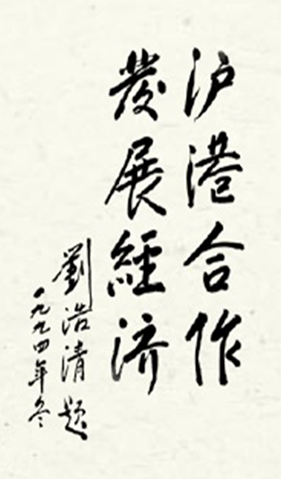 沪港合作
發展經济
劉浩清题
一九九四年冬